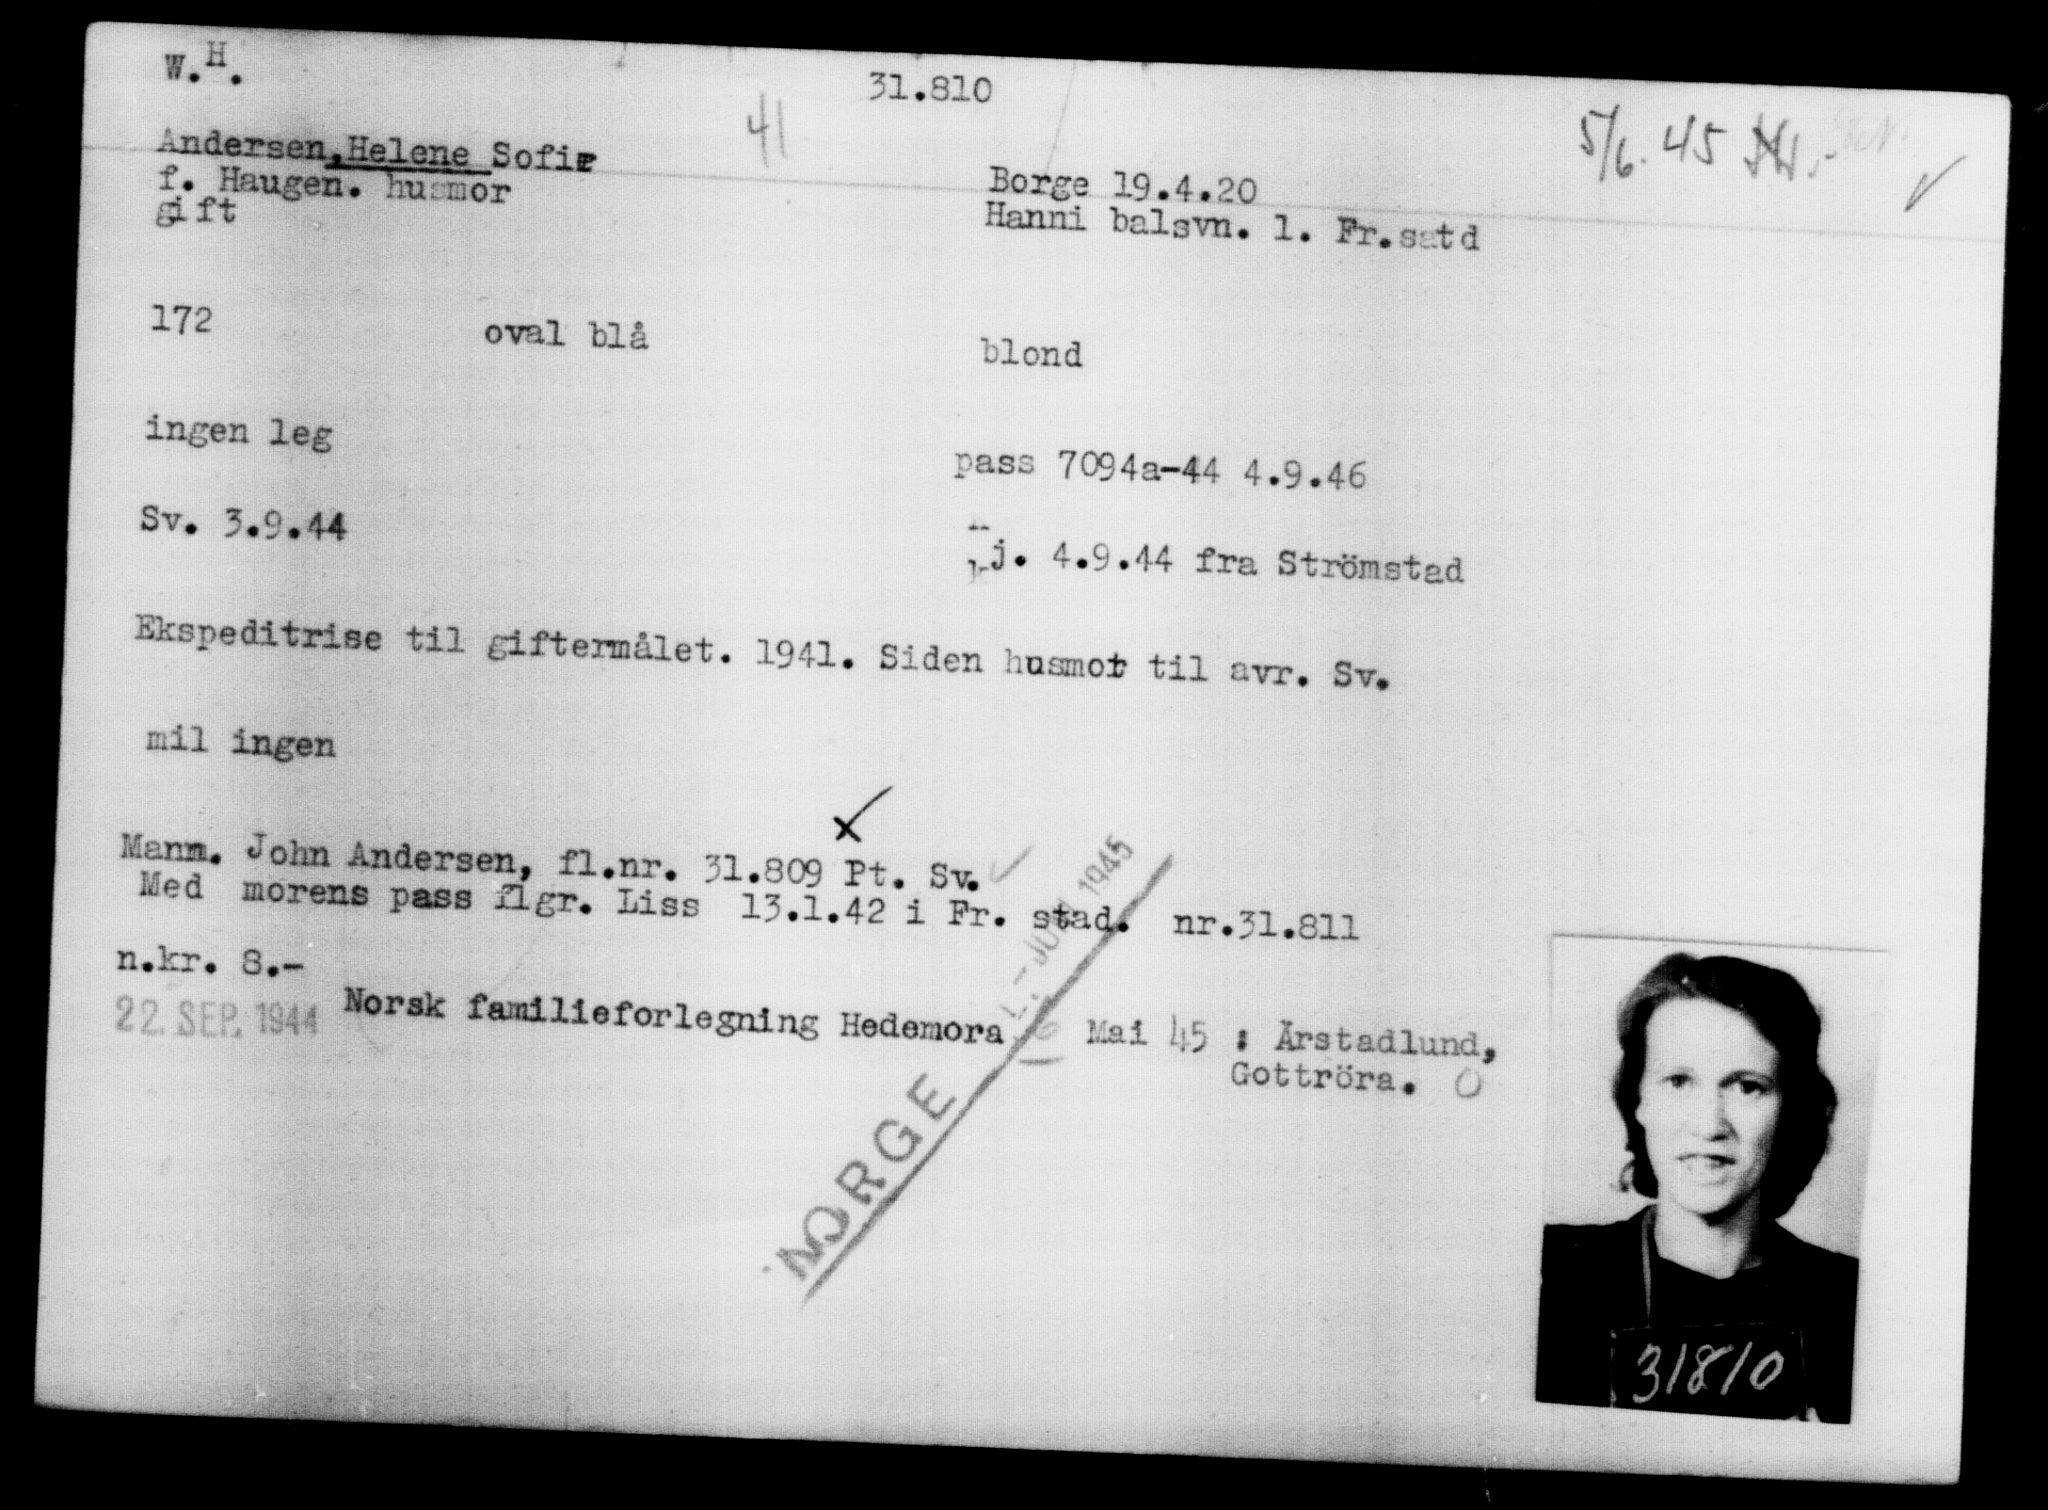 W.H.
31.810
41
5/6. 45
Andersen, Helene Sofie
f. Haugen. husmor
gift
Borge 19.4.20
Hanni balsvn. 1. Fr.satd
172
oval blå
blond
ingen leg
pass 7094a-44 4.9.46
Sv. 3.9.44
kj. 4.9.44 fra Strömstad
Ekspeditrise til giftermålet. 1941. Siden husmor til avr. Sv.
mil ingen
Mann. John Andersen, fl.nr. 31.809 Pt. Sv.
Med morens pass flgr. Liss 13.1.42 i Fr. stad. nr.31.811
n.kr. 8.-
22. SEP. 1944
Norsk familieforlegning Hedemora
Mai 45 : Ärstadlund,
Gottröra.
NORGE
1945
31810